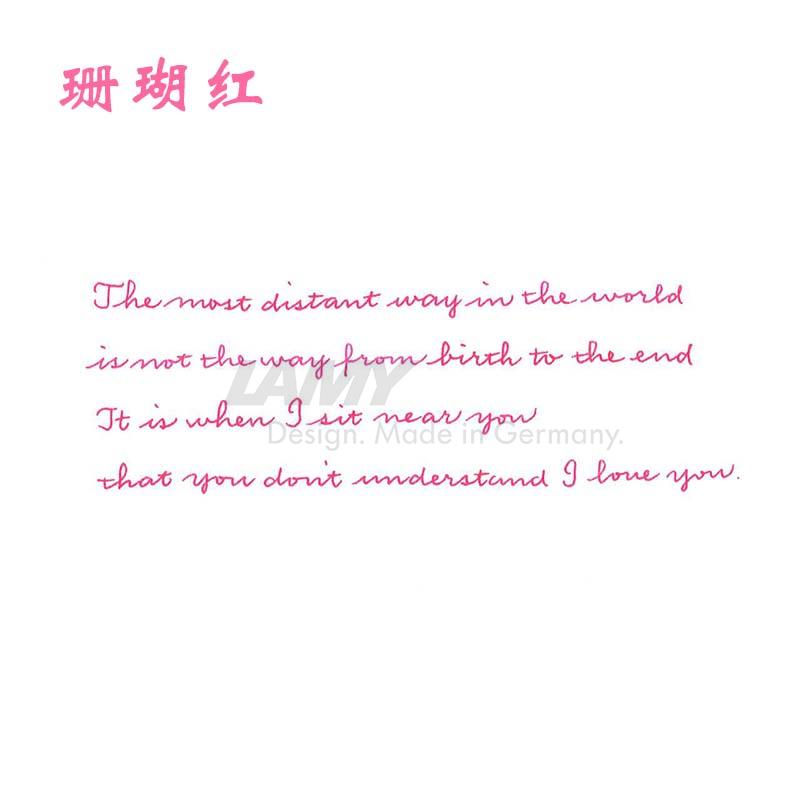 珊瑚红
The most distant way in the world
is not the way from birth to the end
It is when I sit near you
that you don't understand I love you.
LAMY
Design. Made in Germany.